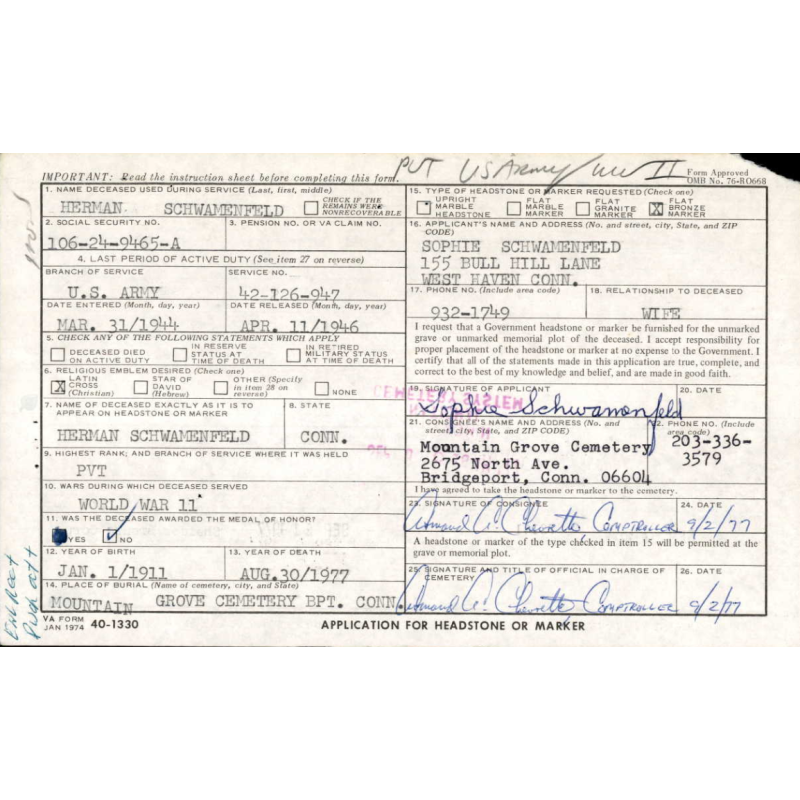 PVT US Army / WW II
IMPORTANT: Read the instruction sheet before completing this form.
Form Approved
OMB No. 76-RO668
1. NAME DECEASED USED DURING SERVICE (Last, first, middle)
HERMAN SCHWAMENFELD
CHECK IF THE REMAINS WERE NONRECOVERABLE
2. SOCIAL SECURITY NO.
106-24-9465-A
3. PENSION NO. OR VA CLAIM NO.
4. LAST PERIOD OF ACTIVE DUTY (See item 27 on reverse)
BRANCH OF SERVICE
U.S. ARMY
SERVICE NO.
42-126-947
DATE ENTERED (Month, day, year)
MAR. 31/1944
DATE RELEASED (Month, day, year)
APR. 11/1946
5. CHECK ANY OF THE FOLLOWING STATEMENTS WHICH APPLY
DECEASED DIED ON ACTIVE DUTY
IN RESERVE STATUS AT TIME OF DEATH
IN RETIRED MILITARY STATUS AT TIME OF DEATH
6. RELIGIOUS EMBLEM DESIRED (Check one)
X LATIN CROSS (Christian)
STAR OF DAVID (Hebrew)
OTHER (Specify in item 28 on reverse)
NONE
7. NAME OF DECEASED EXACTLY AS IT IS TO APPEAR ON HEADSTONE OR MARKER
HERMAN SCHWAMENFELD
8. STATE
CONN.
9. HIGHEST RANK; AND BRANCH OF SERVICE WHERE IT WAS HELD
PVT
10. WARS DURING WHICH DECEASED SERVED
WORLD WAR 11
11. WAS THE DECEASED AWARDED THE MEDAL OF HONOR?
YES ✓ NO
12. YEAR OF BIRTH
JAN. 1/1911
13. YEAR OF DEATH
AUG.30/1977
14. PLACE OF BURIAL (Name of cemetery, city, and State)
MOUNTAIN GROVE CEMETERY BPT. CONN.
15. TYPE OF HEADSTONE OR MARKER REQUESTED (Check one)
UPRIGHT MARBLE HEADSTONE
FLAT MARBLE MARKER
FLAT GRANITE MARKER
X FLAT BRONZE MARKER
16. APPLICANT'S NAME AND ADDRESS (No. and street, city, State, and ZIP CODE)
SOPHIE SCHWAMENFELD
155 BULL HILL LANE
WEST HAVEN CONN.
17. PHONE NO. (Include area code)
932-1749
18. RELATIONSHIP TO DECEASED
WIFE
I request that a Government headstone or marker be furnished for the unmarked
grave or unmarked memorial plot of the deceased. I accept responsibility for
proper placement of the headstone or marker at no expense to the Government. I
certify that all of the statements made in this application are true, complete, and
correct to the best of my knowledge and belief, and are made in good faith.
19. SIGNATURE OF APPLICANT
Sophie Schwamenfeld
20. DATE
CEMETERY SYSTEM
21. CONSIGNEE'S NAME AND ADDRESS (No. and street, city, State, and ZIP CODE)
Mountain Grove Cemetery
2675 North Ave.
Bridgeport, Conn. 06604
22. PHONE NO. (Include area code)
203-336-
3579
I have agreed to take the headstone or marker to the cemetery.
23. SIGNATURE OF CONSIGNEE
Armand A. Chevrette, Comptroller
24. DATE
9/2/77
A headstone or marker of the type checked in item 15 will be permitted at the
grave or memorial plot.
25. SIGNATURE AND TITLE OF OFFICIAL IN CHARGE OF CEMETERY
Armand A. Chevrette, Comptroller
26. DATE
9/2/77
VA FORM
JAN 1974 40-1330
APPLICATION FOR HEADSTONE OR MARKER